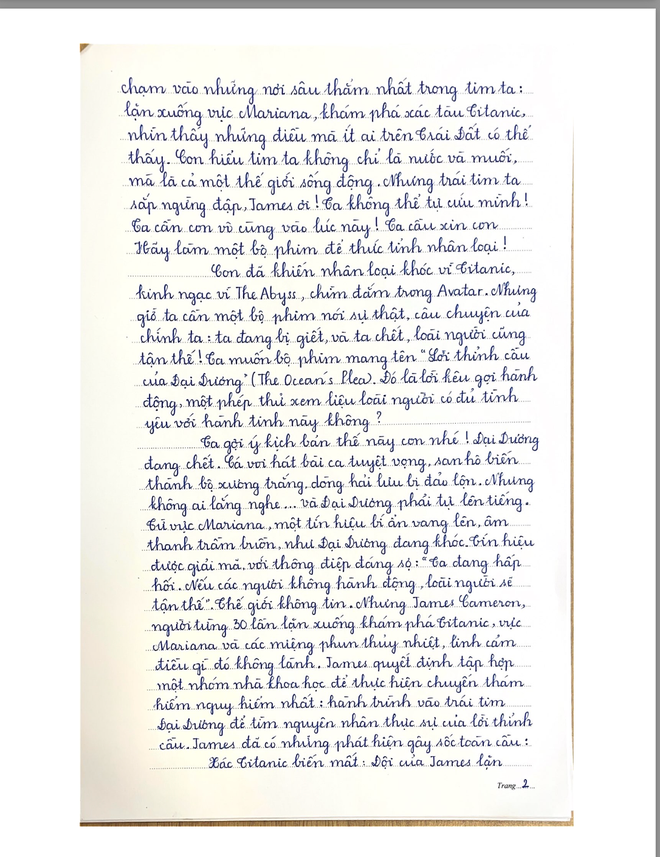 chạm vào những nơi sâu thẳm nhất trong tim ta:
lặn xuống vực Mariana, khám phá xác tàu Titanic,
nhìn thấy những điều mà ít ai trên Trái Đất có thể
thấy. Con hiểu tim ta không chỉ là nước và muối,
mà là cả một thế giới sống động. Nhưng trái tim ta
sắp ngừng đập, James ơi! Ta không thể tự cứu mình!
Ta cần con vô cùng vào lúc này! Ta cầu xin con
Hãy làm một bộ phim để thức tỉnh nhân loại!
Con đã khiến nhân loại khóc vì Titanic,
kinh ngạc vì The Abyss, chìm đắm trong Avatar. Nhưng
giờ ta cần một bộ phim nói sự thật, câu chuyện của
chính ta: ta đang bị giết, và ta chết, loài người cũng
tận thế! Ta muốn bộ phim mang tên "Lời thỉnh cầu
của Đại Dương" (The Ocean's Plea). Đó là lời kêu gọi hành
động, một phép thử xem liệu loài người có đủ tình
yêu với hành tinh này không?
Ta gợi ý kịch bản thế này con nhé! Đại Dương
đang chết. Cá voi hát bài ca tuyệt vọng, san hô biến
thành bộ xương trắng, dòng hải lưu bị đảo lộn. Nhưng
không ai lắng nghe... và Đại Dương phải tự lên tiếng.
Từ vực Mariana, một tín hiệu bí ẩn vang lên, âm
thanh trầm buồn, như Đại Dương đang khóc. Tín hiệu
được giải mã, với thông điệp đáng sợ: "Ta đang hấp
hối. Nếu các người không hành động, loài người sẽ
tận thế". Thế giới không tin. Nhưng James Cameron,
người từng 30 lần lặn xuống khám phá Titanic, vực
Mariana và các miệng phun thủy nhiệt, linh cảm
điều gì đó không lành. James quyết định tập hợp
một nhóm nhà khoa học để thực hiện chuyến thám
hiểm nguy hiểm nhất: hành trình vào trái tim
Đại Dương để tìm nguyên nhân thực sự của lời thỉnh
cầu. James đã có những phát hiện gây sốc toàn cầu:
Xác Titanic biến mất: Đội của James lặn
Trang...2...